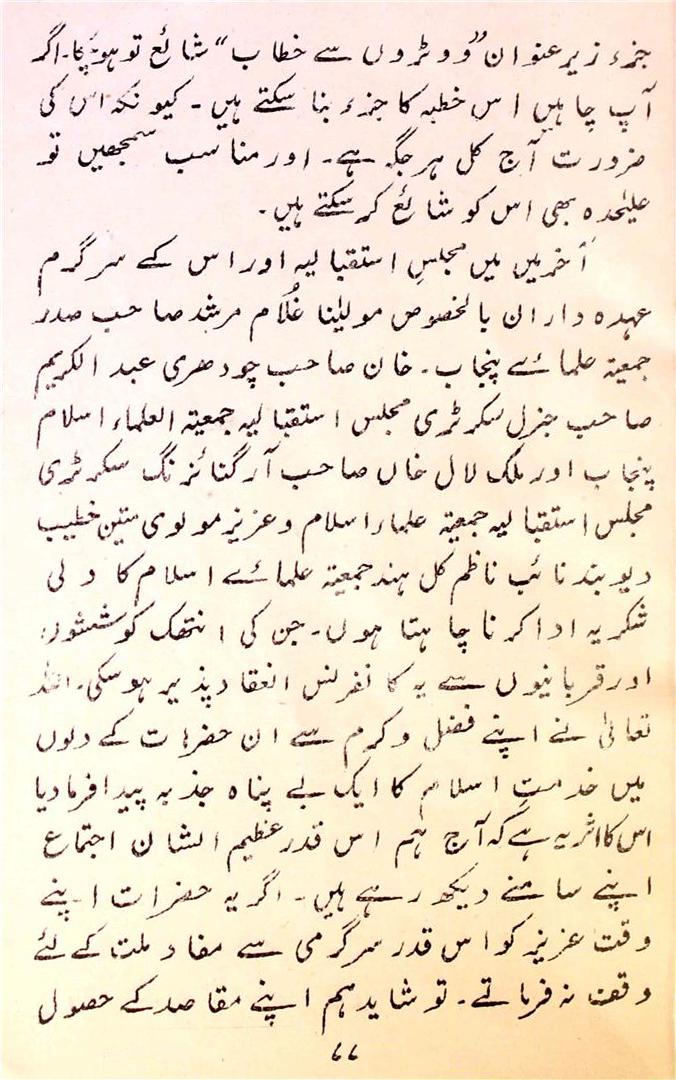 جزء زیر عنوان ”ووٹروں سے خطاب“ شائع تو ہو چکا۔ اگر
آپ چاہیں اس خطبہ کا جزء بنا سکتے ہیں۔ کیونکہ اس کی
ضرورت آج کل ہر جگہ ہے۔ اور مناسب سمجھیں تو
علیٰحدہ بھی اس کو شائع کر سکتے ہیں۔
آخر میں میں مجلسِ استقبالیہ اور اس کے سرگرم
عہدہ داران بالخصوص مولیٰنا غلام مرشد صاحب صدر
جمعیۃ علمائے پنجاب۔ خان صاحب چودھری عبد الکریم
صاحب جنرل سکرٹری مجلس استقبالیہ جمعیۃ العلماء اسلام
پنجاب اور ملک لال خاں صاحب آرگنائزنگ سکرٹری
مجلس استقبالیہ جمعیۃ علماء اسلام و عزیز مولوی متین خطیب
دیوبند نائب ناظم کل ہند جمعیۃ علمائے اسلام کا دلی
شکریہ ادا کرنا چاہتا ہوں۔ جن کی انتھک کوششوں
اور قربانیوں سے یہ کانفرنس انعقاد پذیر ہو سکی۔ اللہ
تعالیٰ نے اپنے فضل و کرم سے ان حضرات کے دلوں
میں خدمتِ اسلام کا ایک بے پناہ جذبہ پیدا فرما دیا
اس کا اثر یہ ہے کہ آج ہم اس قدر عظیم الشان اجتماع
اپنے سامنے دیکھ رہے ہیں۔ اگر یہ حضرات اپنے
وقت عزیز کو اس قدر سرگرمی سے مفاد ملت کے لئے
وقف نہ فرماتے۔ تو شاید ہم اپنے مقاصد کے حصول
۶۷